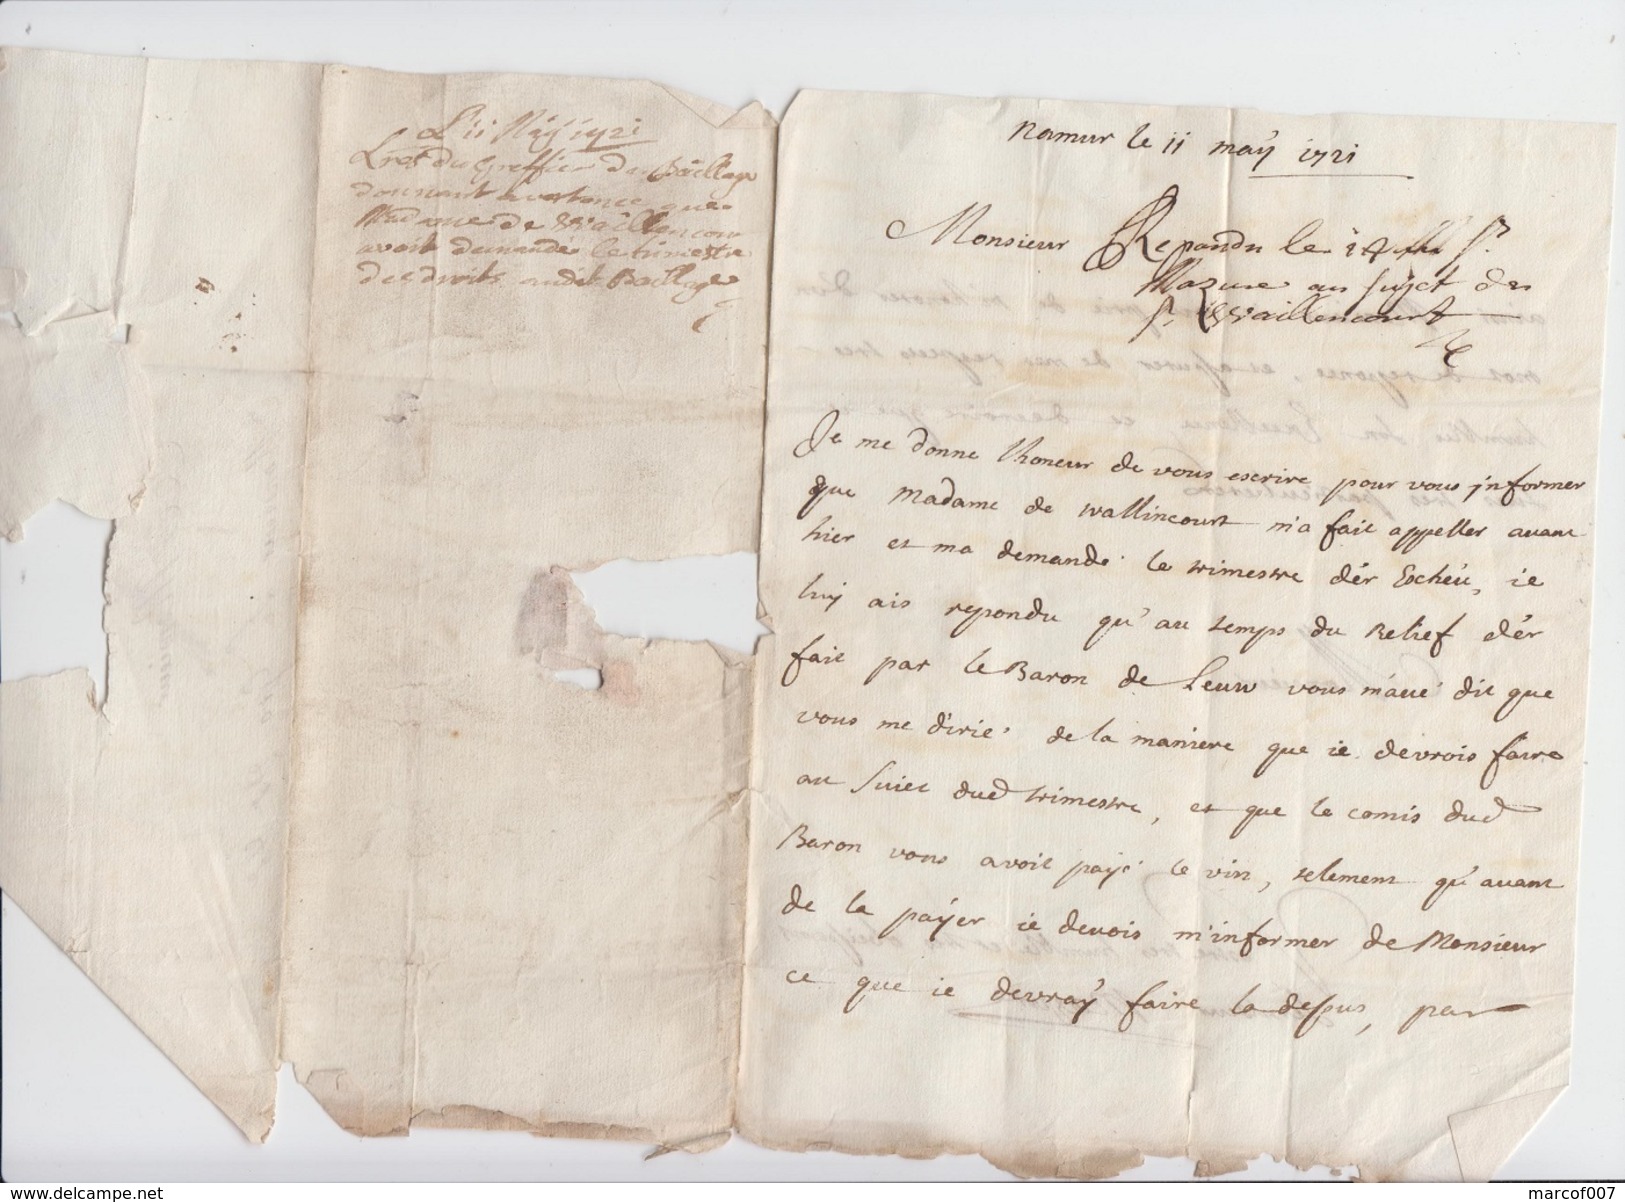 L'11 May 1721
Lres du Greffier du Baillage
donnant avertence que
Madame de Waillencour
avoit demandé le trimestre
des droits audit Baillage
Namur le 11 may 1721
Monsieur
Repondu le 14 Sr
Mazure au sujet des
Sr Waillencourt
Je me donne lhoneur de vous escrire pour vous jnformer
que Madame de Wallincourt m'a fait appeller avant
hier et ma demandé le trimestre dér Eschéu, ie
luy ais repondu qu'au temps du Relief dér
fait par le Baron de Leuw vous m'avé dit que
vous me dirié de la maniere que ie devrois faire
au suiet dud trimestre, et que le comis dud
Baron vous avoit payé le vin, telement qu'avant
de la payer ie devois m'informer de Monsieur
ce que ie devray faire la dessus, par
www.delcampe.net
marcof007